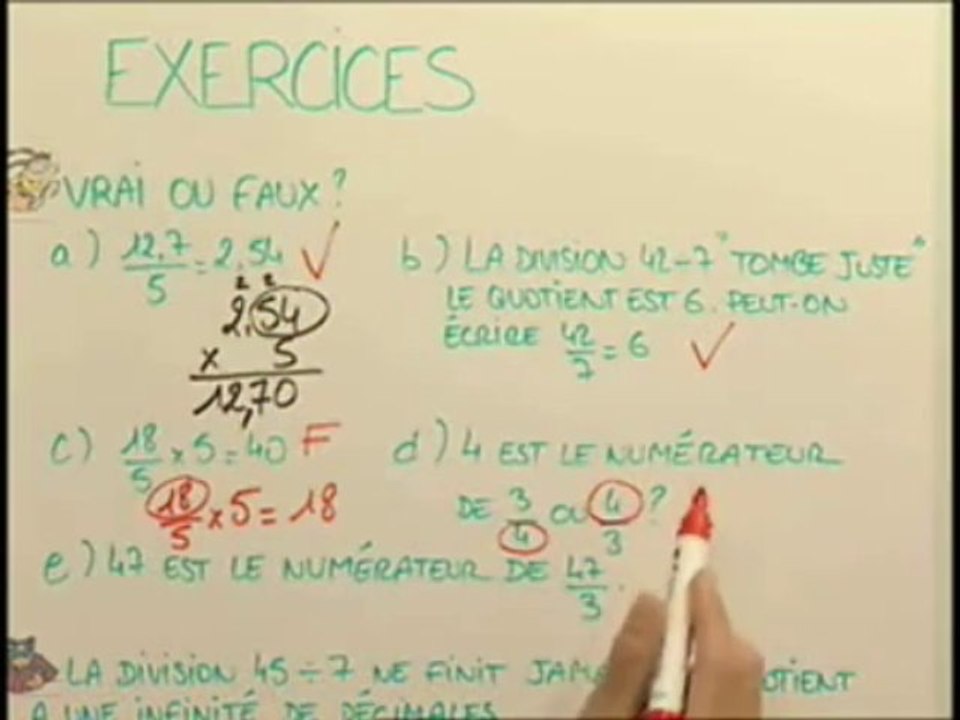 EXERCICES
VRAI OU FAUX ?
a) 12,7/5 = 2,54 ✓
2,54
x 5
12,70
b) LA DIVISION 42-7 "TOMBE JUSTE"
LE QUOTIENT EST 6. PEUT-ON
ÉCRIRE 42/7 = 6 ✓
c) 18/5 x 5 = 40 F
18/5 x 5 = 18
d) 4 EST LE NUMÉRATEUR
DE 3/4 OU 4/3 ?
e) 47 EST LE NUMÉRATEUR DE 47/3.
LA DIVISION 45÷7 NE FINIT
A UNE INFINITÉ DE DÉCIMALES